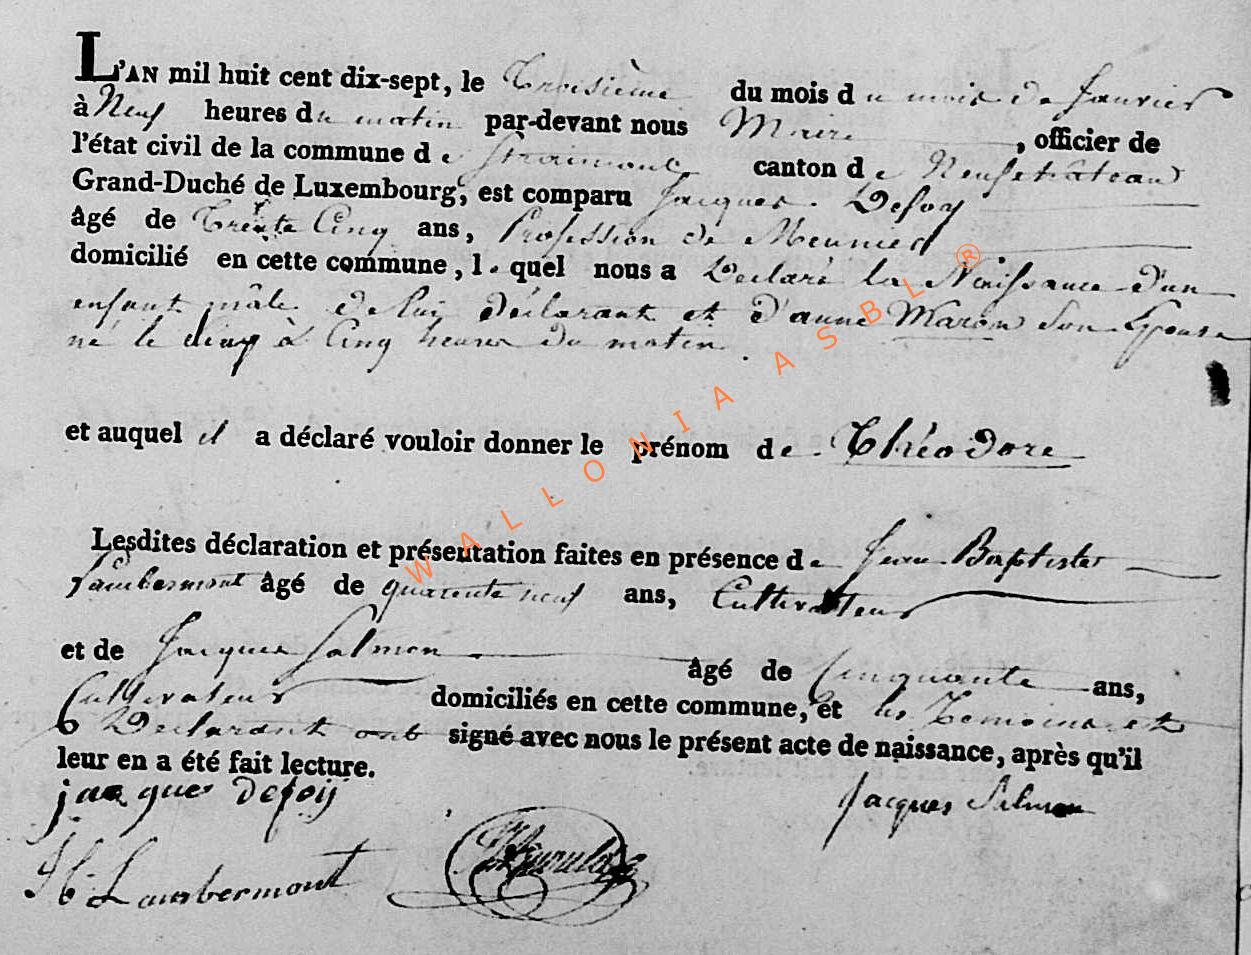 L'AN mil huit cent dix-sept, le Troisième du mois d u mois de Janvier
à Neuf heures du matin par-devant nous Maire, officier de
l'état civil de la commune d e Straimont canton d e Neufchâteau
Grand-Duché de Luxembourg, est comparu Jacques Defoy
âgé de Trente Cinq ans, Profession de Meunier
domicilié en cette commune, l. quel nous a Déclaré la Naissance d'un
enfant mâle de lui déclarant et d'anne Maron son Epouse
né le à Cinq heures du matin.
et auquel il a déclaré vouloir donner le prénom d e Théodore
Lesdites déclaration et présentation faites en présence d e Jean Baptiste
Lambermont âgé de quarante neuf ans, Cultivateur
et de Jacques Salmon âgé de Cinquante ans,
Cultivateur domiciliés en cette commune, et les Temoins et
Declarant ont signé avec nous le présent acte de naissance, après qu'il
leur en a été fait lecture.
jacques defoij
Jacques Salmon
Lambermont
WALLONIA ASBL ®